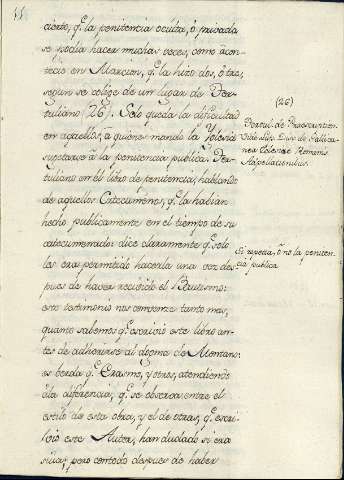 cierto, q.e la penitencia oculta, ò privada
se podia hacer muchas veces, como acon-
tecio en Marcion, q.e la hizo dos, ò tres,
segun se colige de un lugar de Ter-
tuliano (26). Solo queda la dificultad
en aquellos, a quienes mando la Yglesia
sugetarse à la penitencia publica. Ter-
tuliano en el libro de penitencia, hablando
de aquellos Catecumenos, q.e la habian
hecho publicamente en el tiempo de su
catecumenado: dice claramente q.e solo
les era permitido hacerla una vez des-
pues de haver recivido el Bautismo:
este testimonio nos convence tanto mas,
quanto sabemos q.e escrivio este libro an-
tes de adherirse al dogma de Montano:
es verdad q.e Erasmo, y otros, atendiendo
à la diferencia, q.e se observa entre el
estilo de esta obra, y el de otras, q.e escri-
vio este Autor, han dudado si era
suia; pero con todo despues de haber
(26)
Tertul. de Praescription.
Si se repedia, ò no la peniten-
cia publica